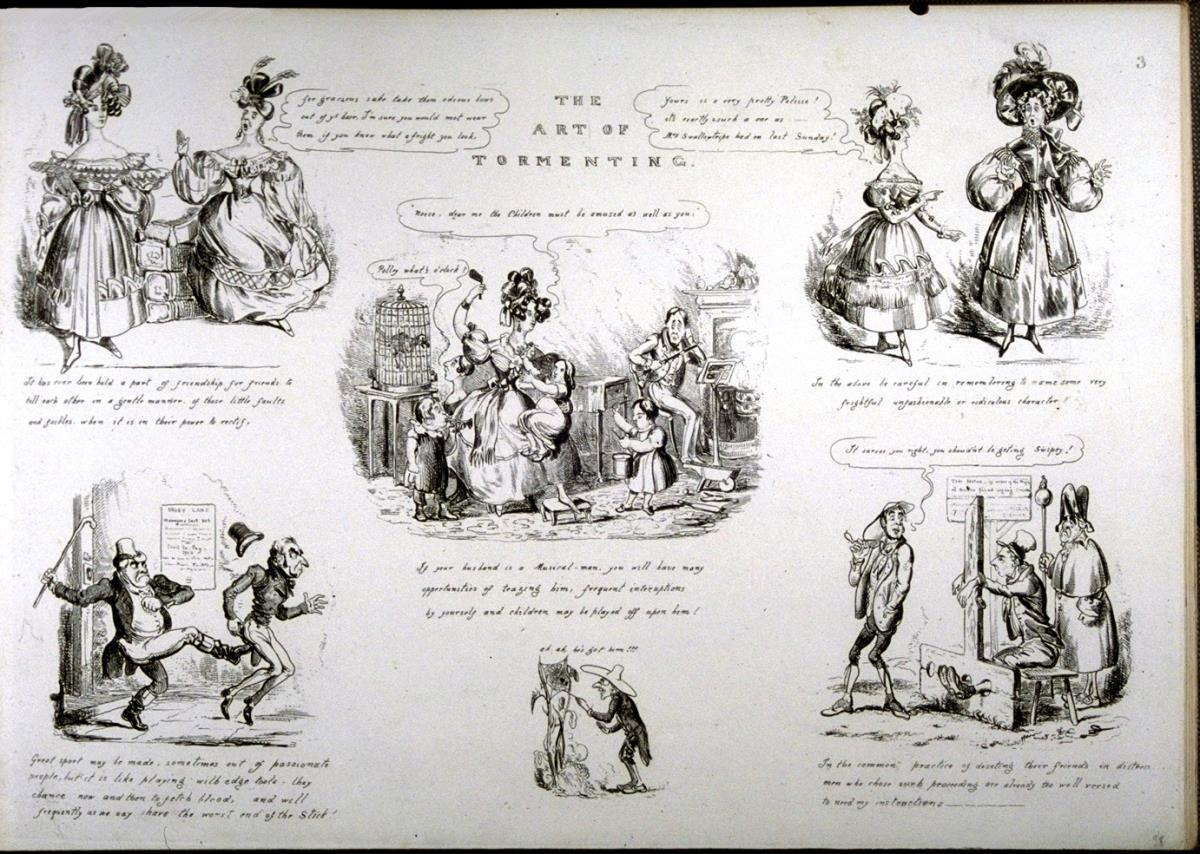 3
THE
ART OF
TORMENTING.
for gracious sake take them odious bows
out of yr hair, I'm sure, you would not wear
them if you knew what a fright you look.
Yours is a very pretty Pelisse!
it's exactly such a one as
Mrs Swallowtripe had on last Sunday!
"Noise, dear me the Children must be amused as well as you."
Polly what's o'clock!
It has ever been held a part of friendship for friends to
tell each other in a gentle manner, of those little faults
and foibles, when it is in their power to rectify,
In the above be careful in remembering to name some very
frightful unfashionable or ridiculous character!
It sarves you right, you shouldn't be geting Swipey!
DRURY LANE
If your husband is a Musical-man, you will have many
opportunities of teazing him, frequent interuptions
by yourself and children may be played off upon him!
ah, ah, he's got him!!!
Great sport may be made, sometimes out of passionate
people, but it is like playing with edge tools - they
chance now and then to fetch blood, and will
frequently as we say share the worst end of the Stick!
In the common practice of deserting their friends in distress
men who chose such proceeding are already too well versed
to need my instructions